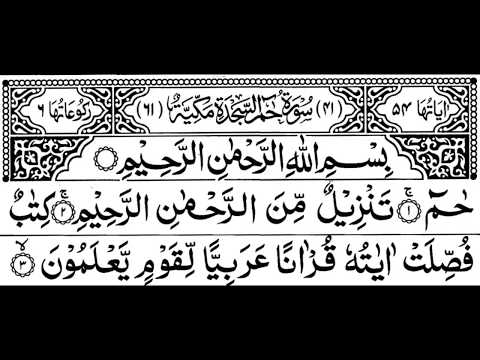 اٰیَاتُهَا ۵۴ (۴۱) سُوْرَةُ حٰمٓ السَّجْدَةِ مَكِّيَّةٌ (۶۱) رُكُوْعَاتُهَا ۶
بِسْمِ اللّٰهِ الرَّحْمٰنِ الرَّحِيْمِ
حٰمٓ ۚ‏﴿۱﴾ تَنْزِيْلٌ مِّنَ الرَّحْمٰنِ الرَّحِيْمِ ۚ‏﴿۲﴾ كِتٰبٌ
فُصِّلَتْ اٰيٰتُهٗ قُرْاٰنًا عَرَبِيًّا لِّقَوْمٍ يَّعْلَمُوْنَ ۙ‏﴿۳﴾